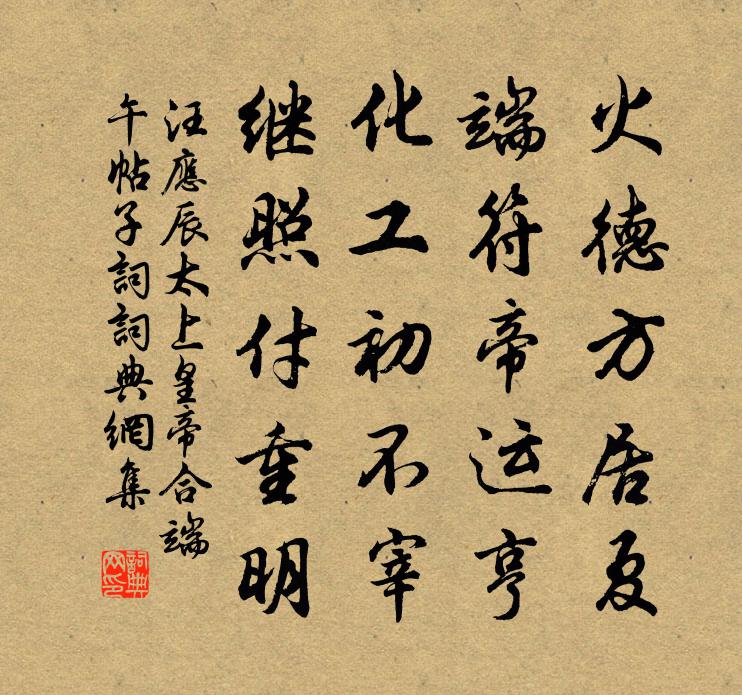 火德方居夏
端符帝运亨
化工初不宰
继照付重明
汪應辰太上皇帝合端
午帖子詞詞典網集
詞典网印